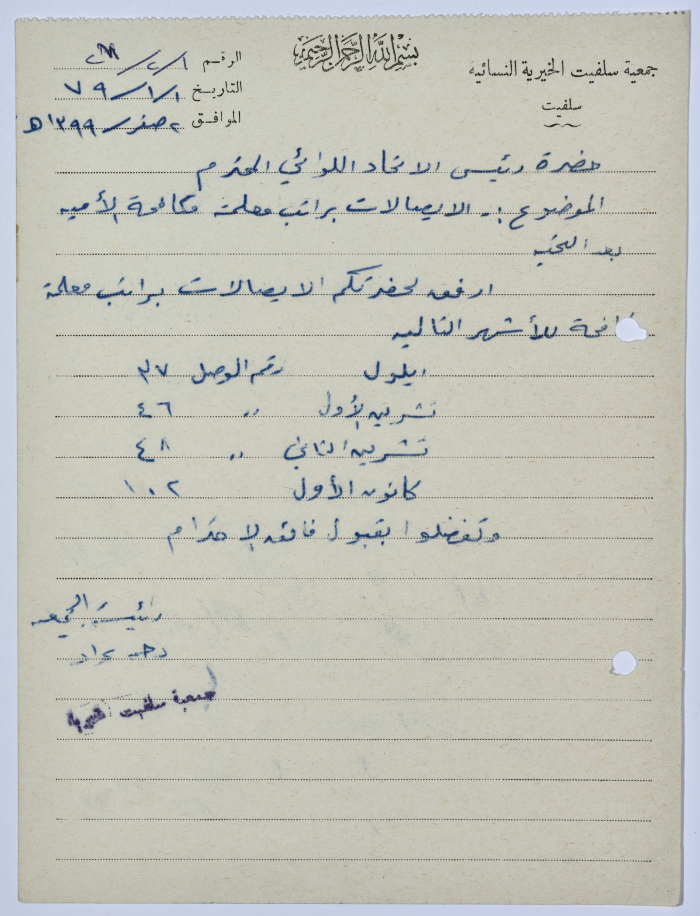 بسم الله الرحمن الرحيم
جمعية سلفيت الخيرية النسائية
سلفيت
الرقم ١/٢/
التاريخ ١/١/٧٩
الموافق ٢ صفر/١٣٩٩هـ
حضرة رئيس الاتحاد اللوائي المحترم
الموضوع :ـ الايصالات براتب معلمة مكافحة الأميه
بعد التحيه
ارفق لحضرتكم الايصالات براتب معلمة
افحة للأشهر التاليه
ايلول رقم الوصل ٣٧
تشرين الأول ,, ٤٦
تشرين الثاني ,, ٤٨
كانون الأول ١٠٢
وتفضلوا بقبول فائق الاحترام
رئيسة الجمعيه
جمعية سلفيت الخيرية